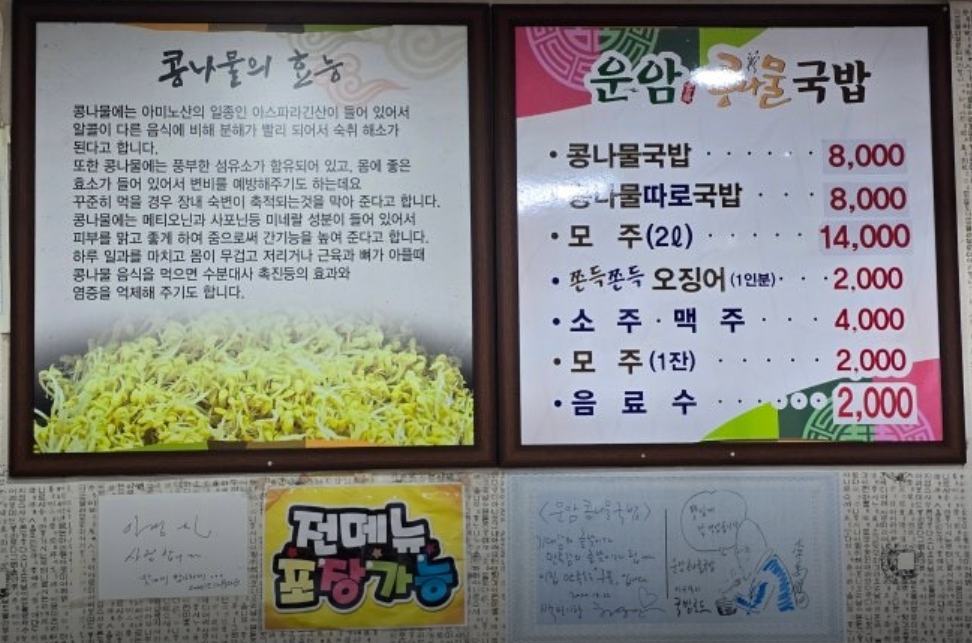 콩나물의 효능
콩나물에는 아미노산의 일종인 아스파라긴산이 들어 있어서
알콜이 다른 음식에 비해 분해가 빨리 되어서 숙취 해소가
된다고 합니다.
또한 콩나물에는 풍부한 섬유소가 함유되어 있고, 몸에 좋은
효소가 들어 있어서 변비를 예방해주기도 하는데요
꾸준히 먹을 경우 장내 숙변이 축적되는것을 막아 준다고 합니다.
콩나물에는 메티오닌과 사포닌등 미네랄 성분이 들어 있어서
피부를 맑고 좋게 하여 줌으로써 간기능을 높여 준다고 합니다.
하루 일과를 마치고 몸이 무겁고 저리거나 근육과 뼈가 아플때
콩나물 음식을 먹으면 수분대사 촉진등의 효과와
염증을 억제해 주기도 합니다.
운암 콩나물국밥
• 콩나물국밥 · · · · · · 8,000
• 콩나물따로국밥 · · · 8,000
• 모 주(2ℓ) · · · · · · 14,000
• 쫀득쫀득 오징어(1인분) · · · 2,000
• 소 주 · 맥 주 · · · · 4,000
• 모 주(1잔) · · · · · · 2,000
• 음 료 수 · · · · 2,000
전메뉴
포장가능
<운암콩나물국밥>
국밥로드